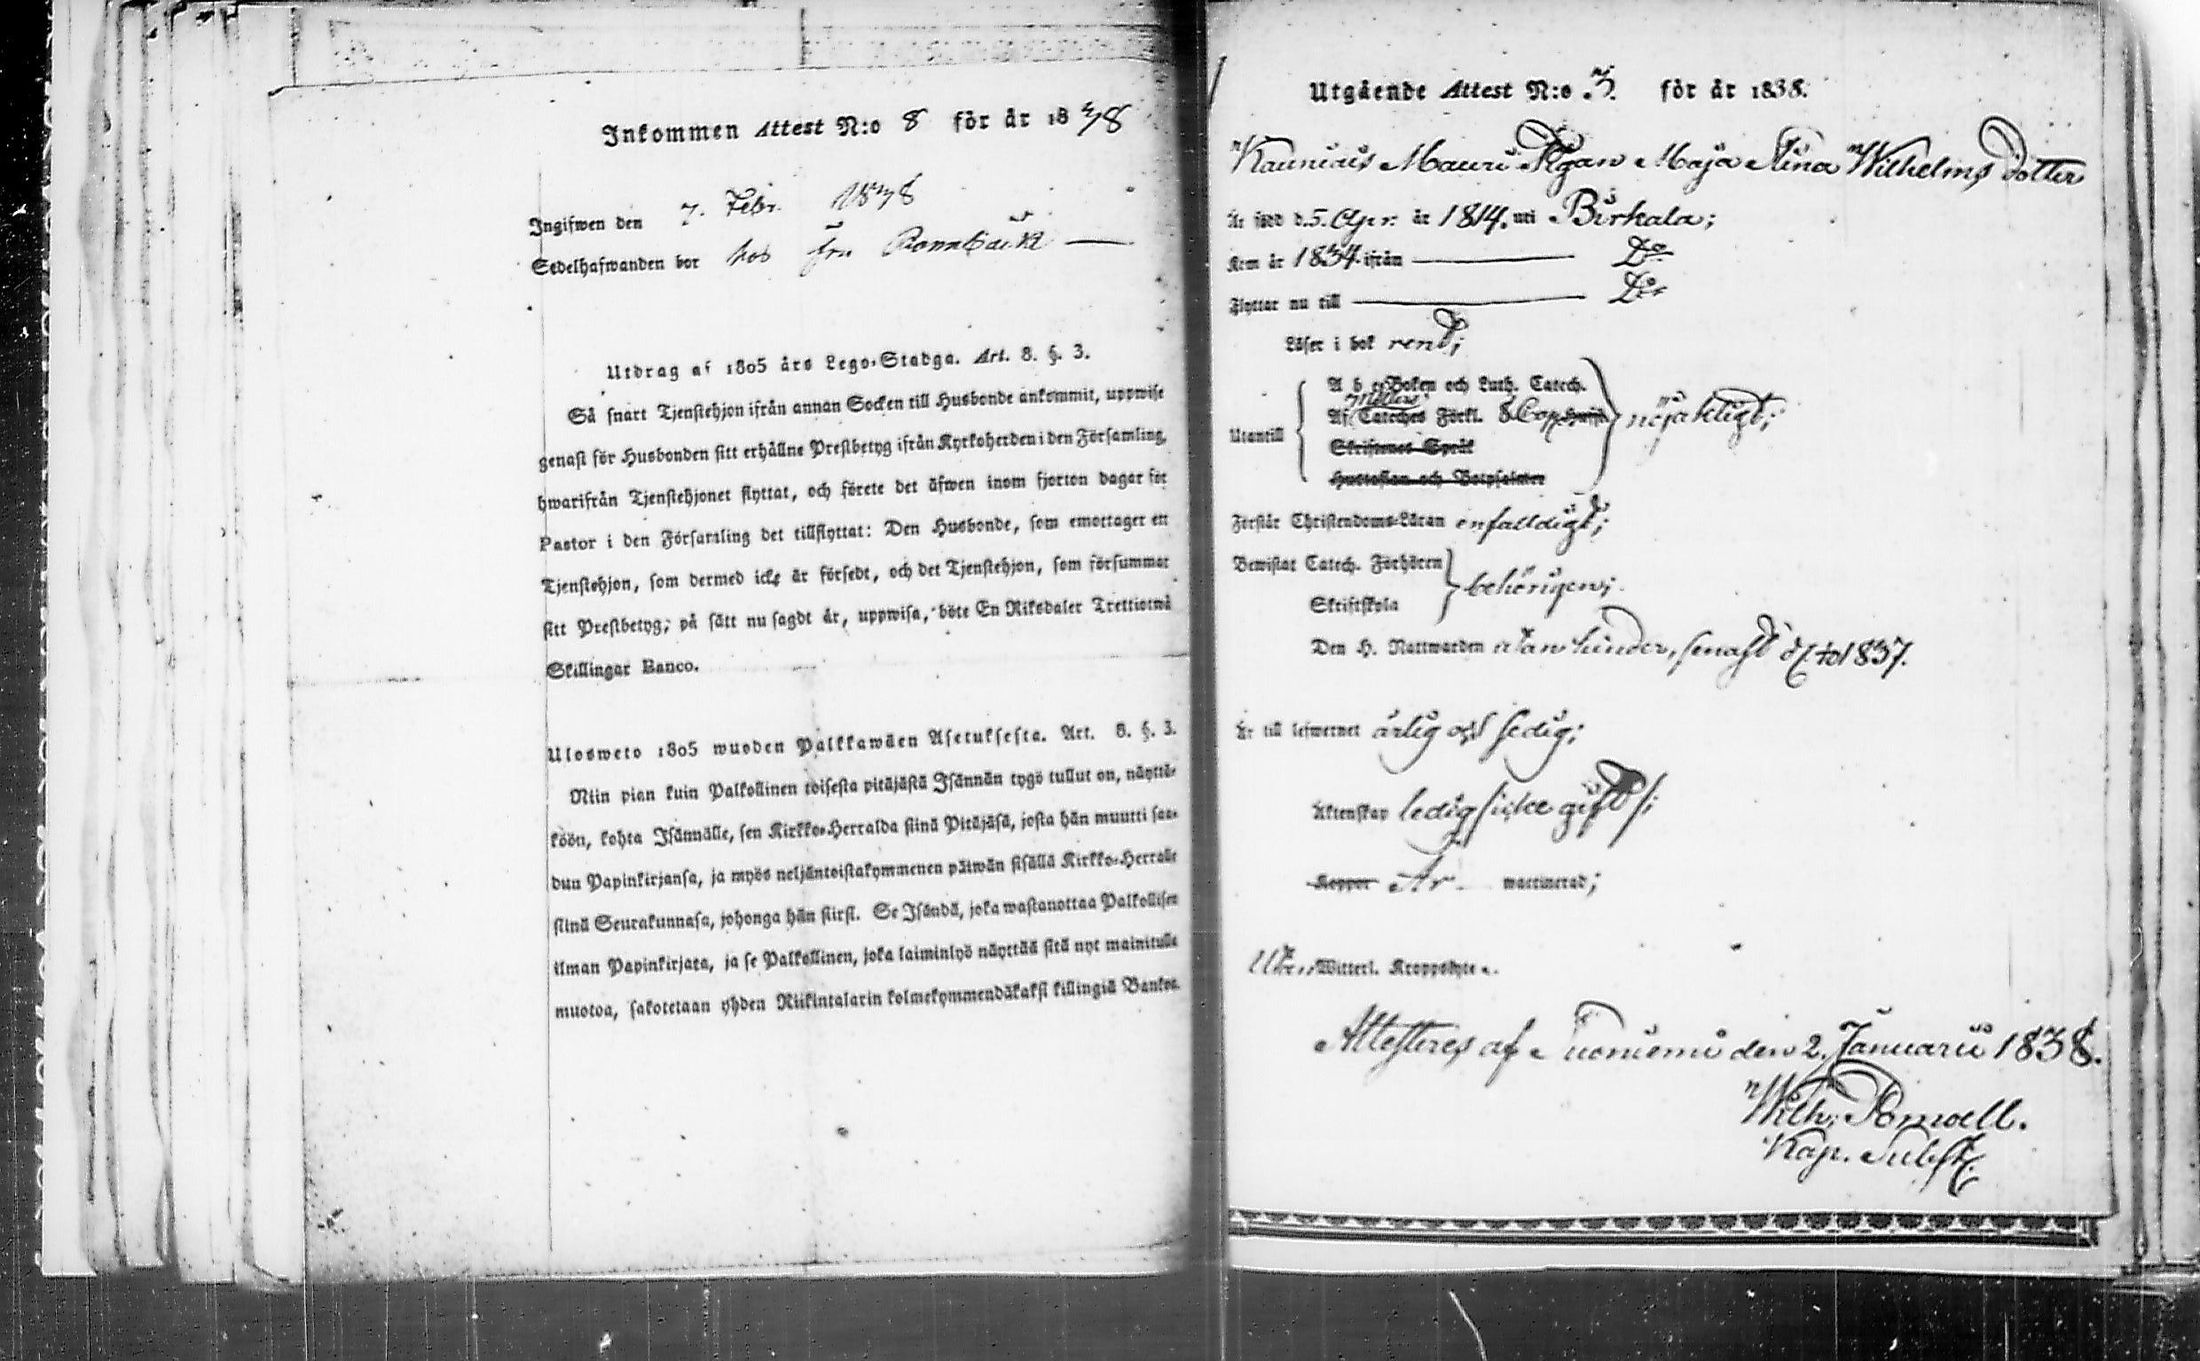 Inkommen Attest N:o 8 för år 1838
Ingifwen den 7. Febr. 1838
Sedelhafwanden bor hos fru
Utdrag af 1805 års Lego-Stadga. Art. 8. §. 3.
Så snart Tjenstehjon ifrån annan Socken till Husbonde ankommit, uppwise
genast för Husbonden sitt erhållne Prestbetyg ifrån Kyrkoherden i den Församling,
hwarifrån Tjenstehjonet flyttat, och förete det äfwen inom fjorton dagar för
Pastor i den Församling det tillflyttat: Den Husbonde, som emottager ett
Tjenstehjon, som dermed icke är försedt, och det Tjenstehjon, som försummat
sitt Prestbetyg, på sätt nu sagdt är, uppwisa, böte En Riksdaler Trettiotwå
Skillingar Banco.
Ulosweto 1805 wuoden Palkkawäen Asetuksesta. Art. 8. §. 3.
Niin pian kuin Palkollinen toisesta pitäjästä Isännän tygö tullut on, näyttä-
köön, kohta Isännälle, sen Kirkko-Herralda siinä Pitäjäsä, josta hän muutti saa-
dun Papinkirjansa, ja myös neljäntoistakymmenen päiwän sisällä Kirkko-Herralle
siinä Seurakunnasa, johonga hän siirsi. Se Isändä, joka wastanottaa Palkollisen
ilman Papinkirjata, ja se Palkollinen, joka laiminlyö näyttää sitä nyt mainitulla
muotoa, sakotetaan yhden Riikintalarin kolmekymmendäkaksi killingiä Bankos.
Utgående Attest N:o 3. för år 1838.
Kauniais Mauri Pigan Maja Stina Wilhelms dotter
Är född d. 5. Apr. år 1814. uti Birkala;
Kom år 1834 ifrån Do
Flyttar nu till Do
Läser i bok rent;
A b c Boken och Luth. Catech.
Af Cateches Förkl.
Utantill nöjaktigt;
Skriftenes Språk
Hustaflan och Botpsalmer
Förstår Christendoms-Läran enfalldigt;
Bewistat Catech. Förhören
behörigen;
Skriftskola
Den H. Nattwarden utan hinder, senast 1837.
Är till lefwernet ärlig och sedig;
Äktenskap ledig /icke gift/;
Koppor Är waccinerad;
Utan Witterl. Kroppslyte.
Attesteras af Suoniemi den 2. Januarii 1838.
Wilh: Pomoell.
Kap. Subst.